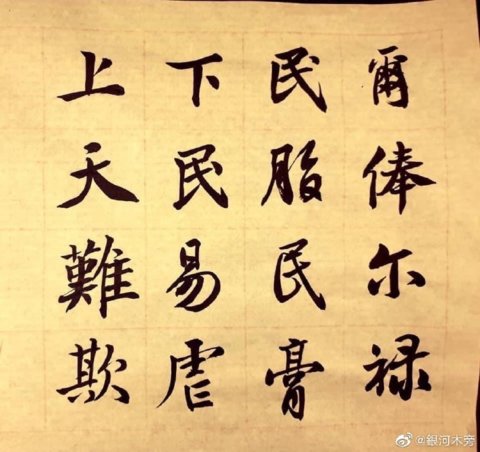 爾俸尓禄
民脂民膏
下民易虐
上天難欺
@銀河木旁